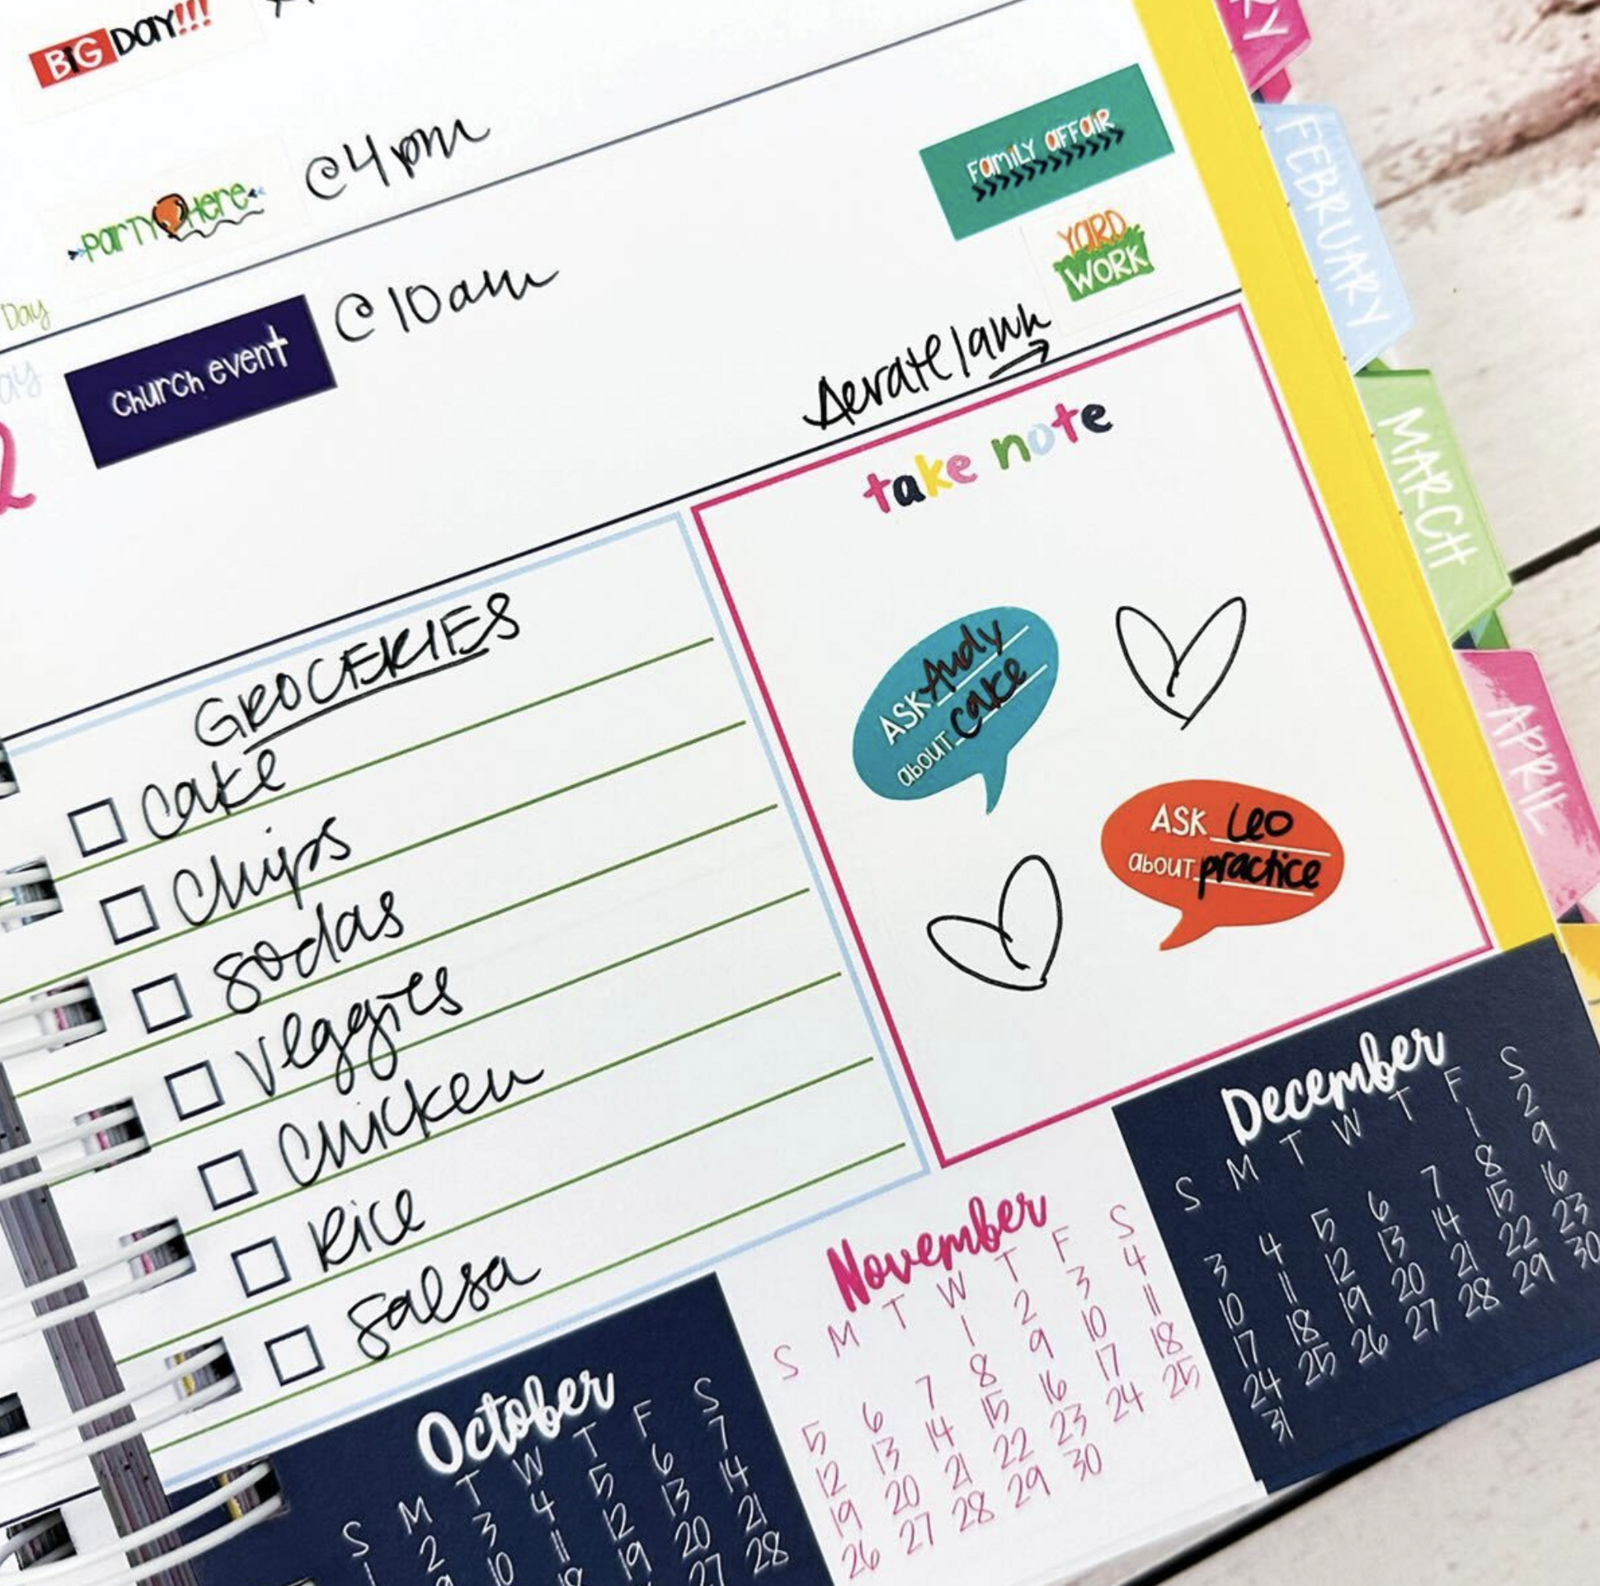 BIG DAY!!!
PARTY HERE
@4pm
FAMILY AFFAIR
YARD
WORK
Day
church event
@ 10am
Aerate lawn
2
take note
GROCERIES
cake
chips
sodas
veggies
chicken
Rice
salsa
ASK Andy
about cake
ASK Leo
about practice
FEBRUARY
MARCH
APRIL
October
S M T W T F S
1 2 3 4 5 6 7
10 11 12 13 14
18 19 20 21
27 28
November
S M T W T F S
1 2 3 4
5 6 7 8 9 10 11
12 13 14 15 16 17 18
19 20 21 22 23 24 25
26 27 28 29 30
December
S M T W T F S
1 2
3 4 5 6 7 8 9
10 11 12 13 14 15 16
17 18 19 20 21 22 23
24 25 26 27 28 29 30
31